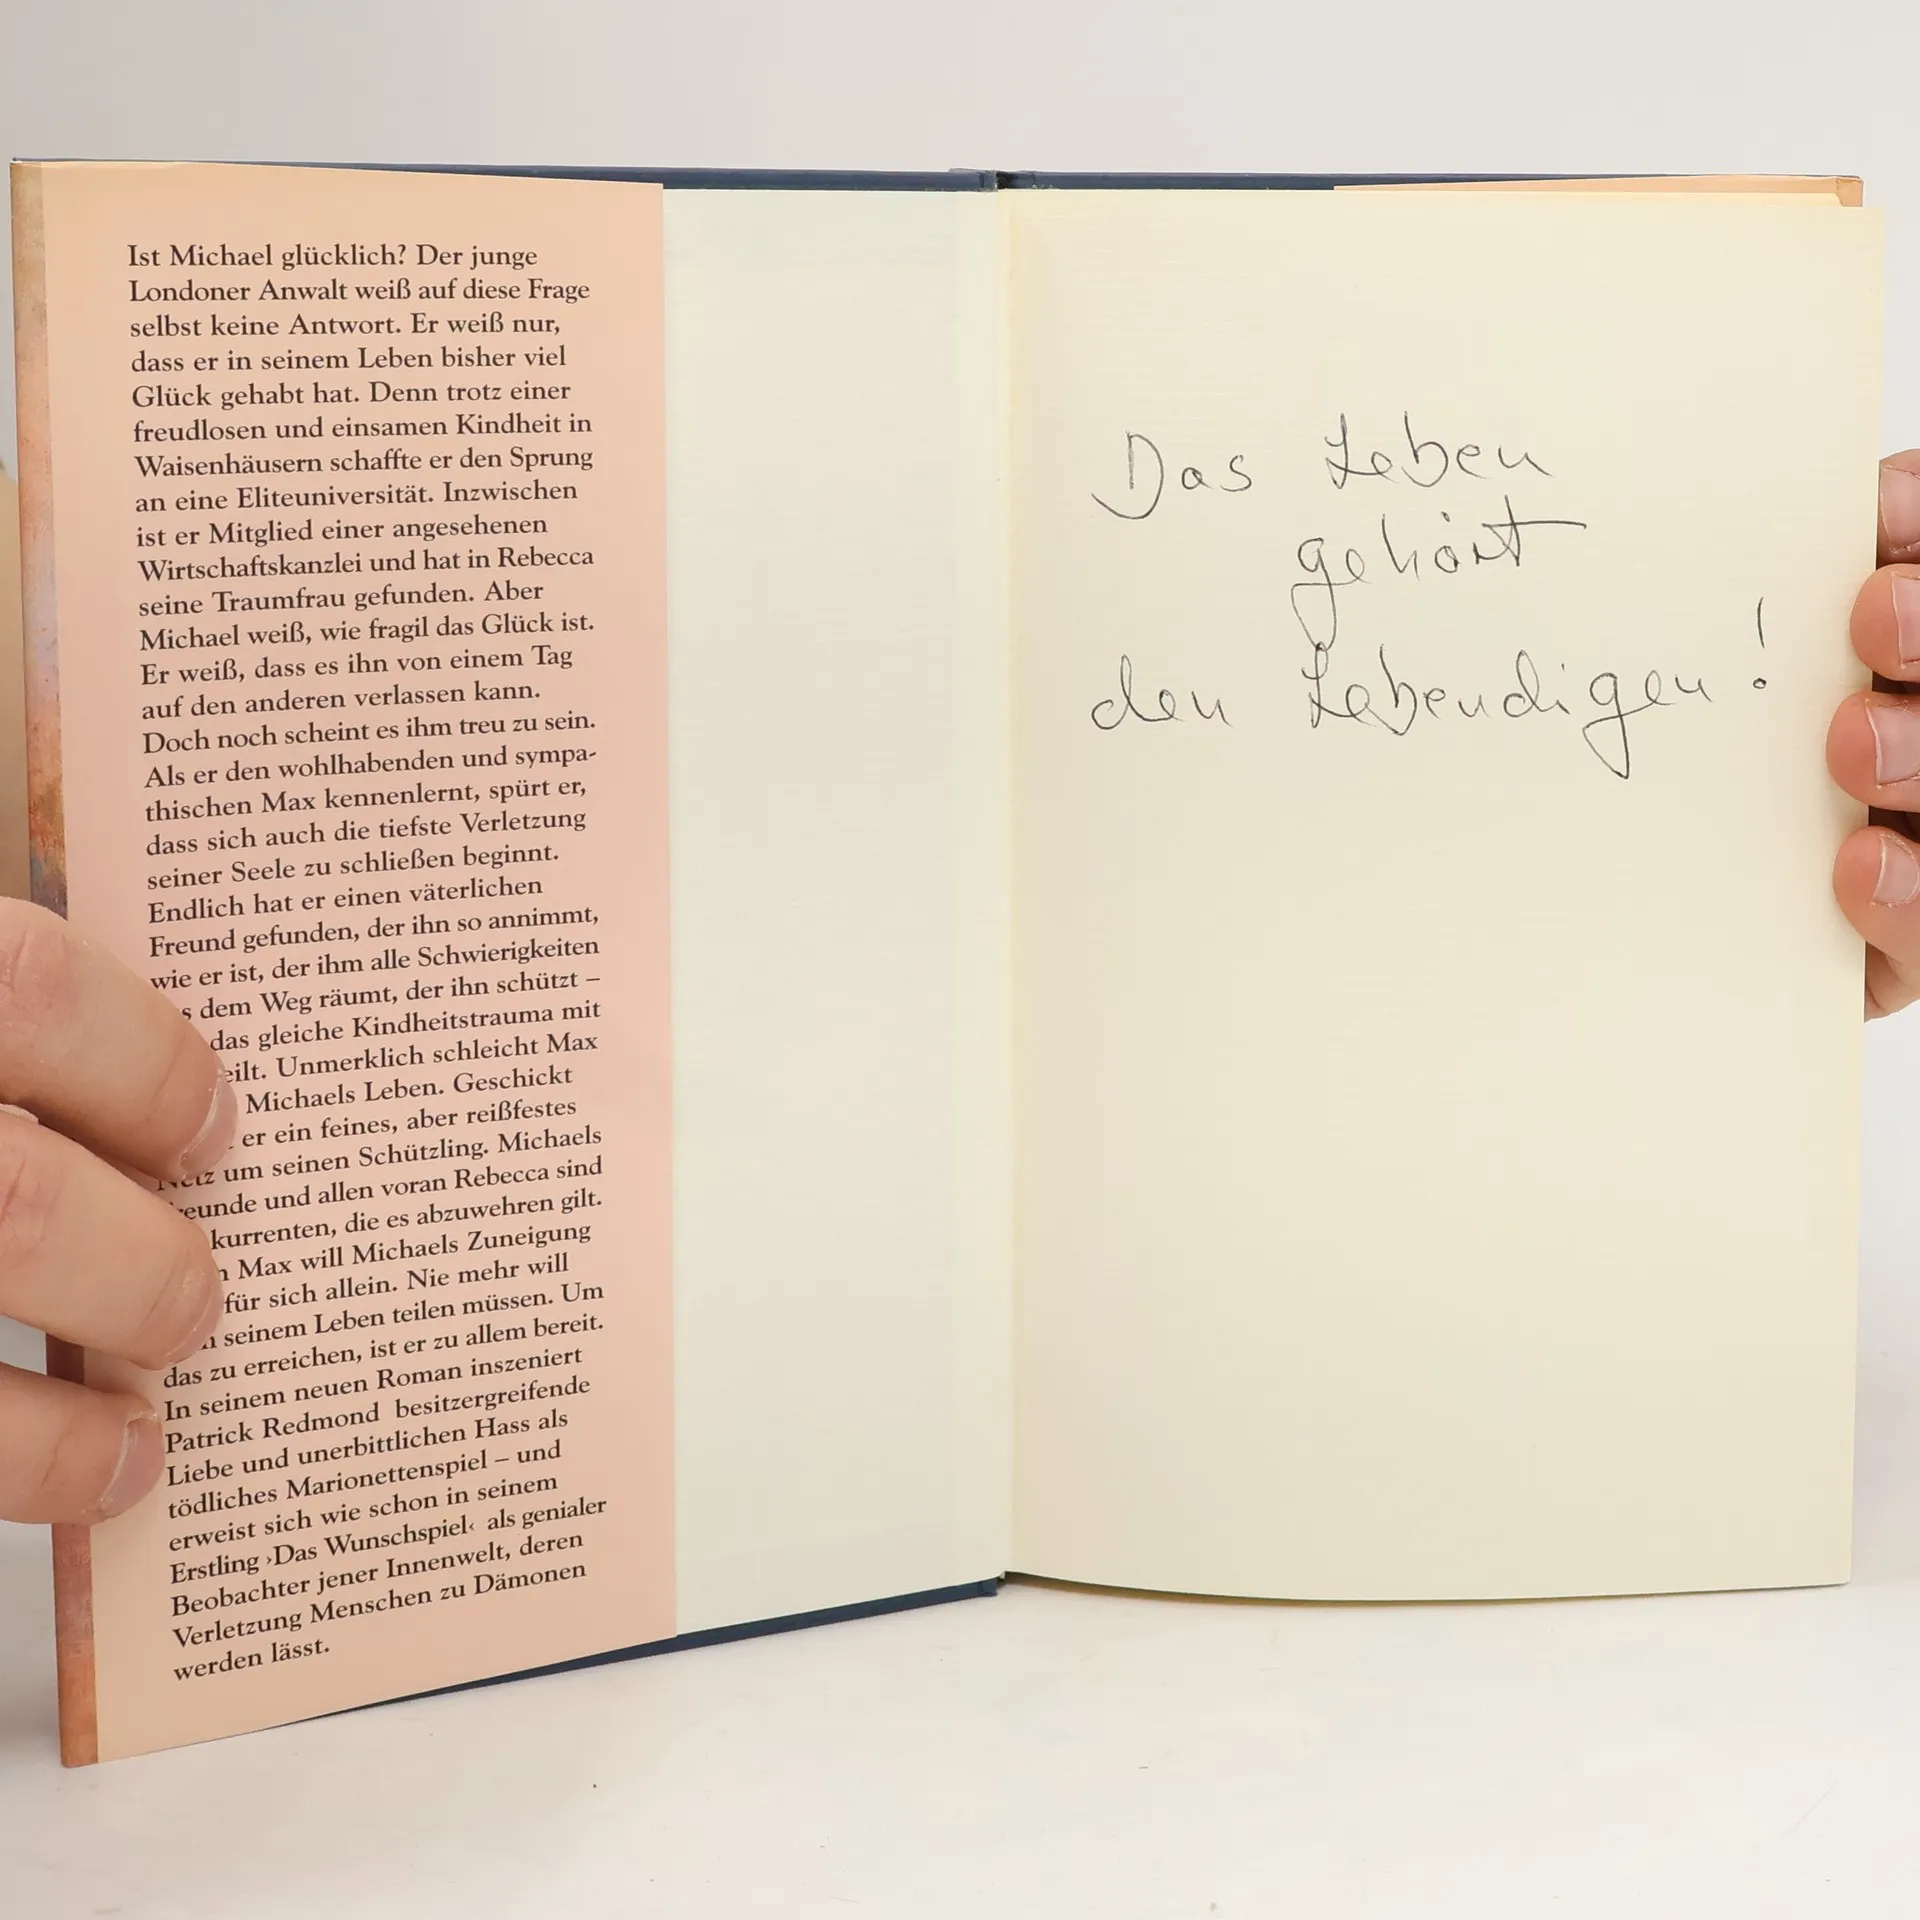 Ist Michael glücklich? Der junge
Londoner Anwalt weiß auf diese Frage
selbst keine Antwort. Er weiß nur,
dass er in seinem Leben bisher viel
Glück gehabt hat. Denn trotz einer
freudlosen und einsamen Kindheit in
Waisenhäusern schaffte er den Sprung
an eine Eliteuniversität. Inzwischen
ist er Mitglied einer angesehenen
Wirtschaftskanzlei und hat in Rebecca
seine Traumfrau gefunden. Aber
Michael weiß, wie fragil das Glück ist.
Er weiß, dass es ihn von einem Tag
auf den anderen verlassen kann.
Doch noch scheint es ihm treu zu sein.
Als er den wohlhabenden und sympa-
thischen Max kennenlernt, spürt er,
dass sich auch die tiefste Verletzung
seiner Seele zu schließen beginnt.
Endlich hat er einen väterlichen
Freund gefunden, der ihn so annimmt,
wie er ist, der ihm alle Schwierigkeiten
dem Weg räumt, der ihn schützt –
das gleiche Kindheitstrauma mit
eilt. Unmerklich schleicht Max
Michaels Leben. Geschickt
er ein feines, aber reißfestes
Netz um seinen Schützling. Michaels
reunde und allen voran Rebecca sind
kurrenten, die es abzuwehren gilt.
Max will Michaels Zuneigung
für sich allein. Nie mehr will
seinem Leben teilen müssen. Um
das zu erreichen, ist er zu allem bereit.
In seinem neuen Roman inszeniert
Patrick Redmond besitzergreifende
Liebe und unerbittlichen Hass als
tödliches Marionettenspiel – und
erweist sich wie schon in seinem
Erstling ›Das Wunschspiel‹ als genialer
Beobachter jener Innenwelt, deren
Verletzung Menschen zu Dämonen
werden lässt.
Das Leben
gehört
den Lebendigen!